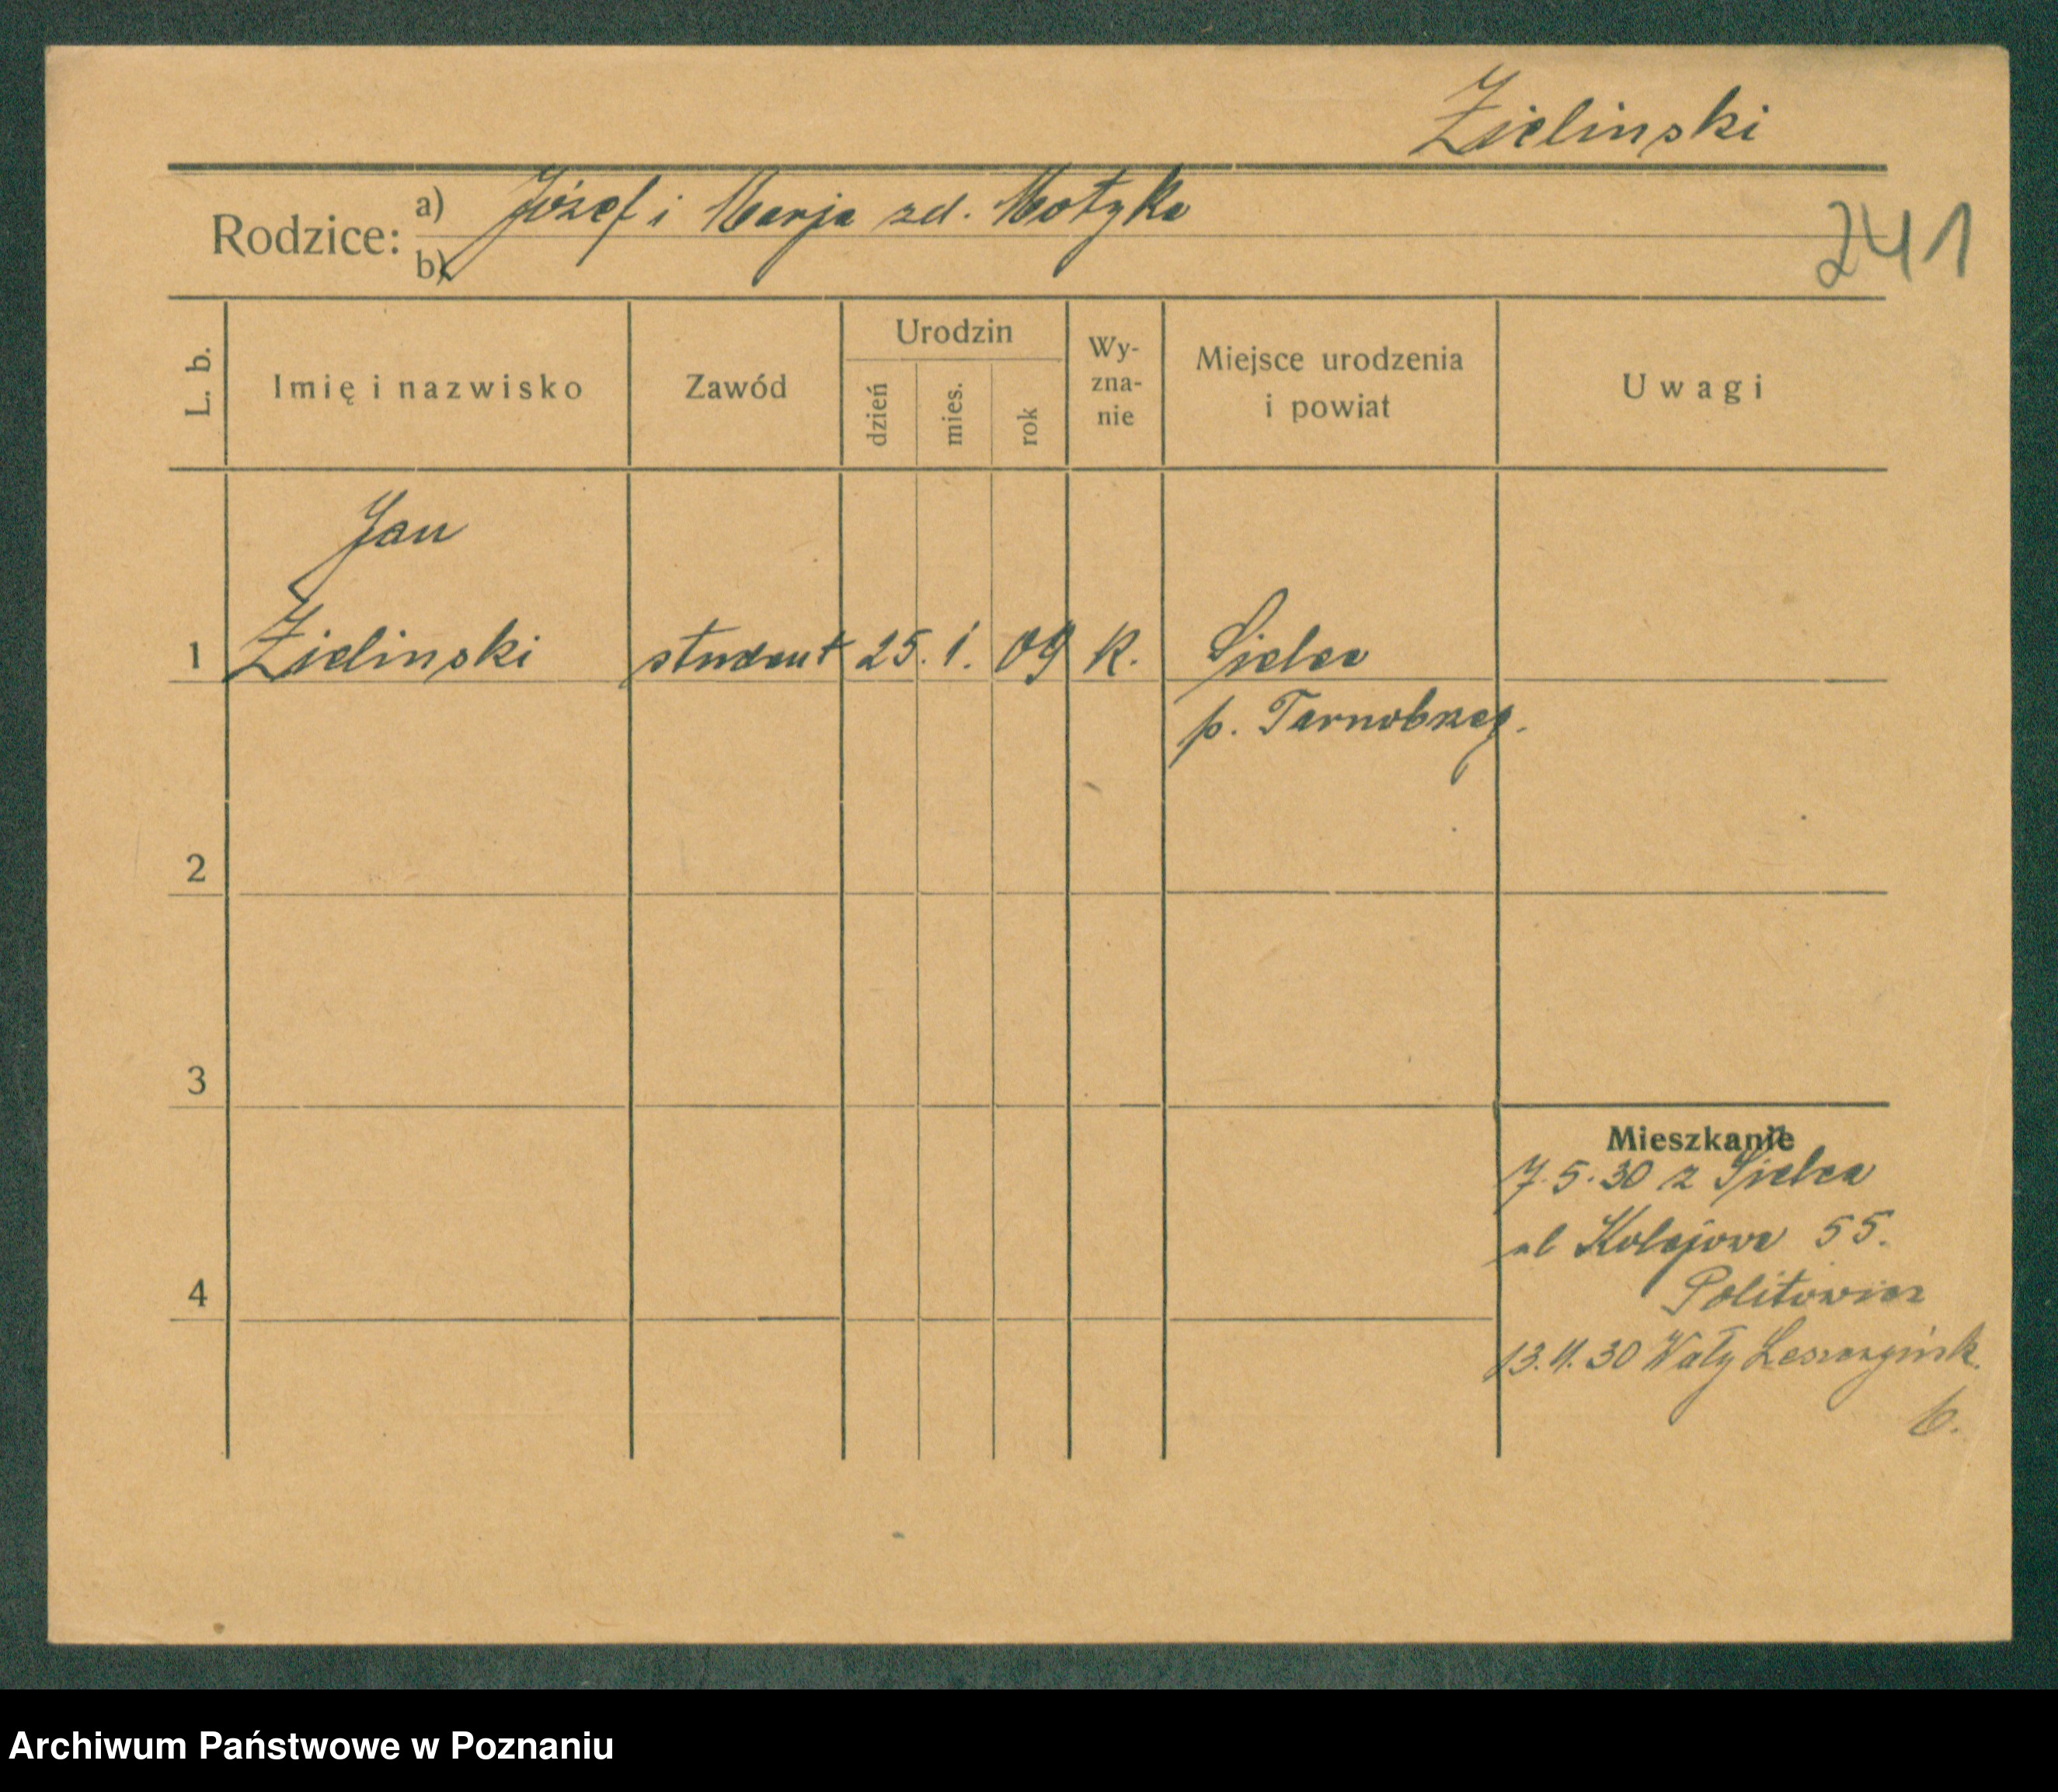 Zielinski
Rodzice: a) Józef i Marja zd. Motyka
b)
241
L. b.
Imię i nazwisko
Zawód
Urodzin
dzień
mies.
rok
Wy-
zna-
nie
Miejsce urodzenia
i powiat
Uwagi
Jan
1 Zielinski student 25. 1. 09 k. Sielec
p. Tarnobrzeg.
2
3
4
Mieszkanie
7.5.30 z Sielca
ul Kolejowa 55.
13.11.30 Wały Leszczyńsk.
6.
Archiwum Państwowe w Poznaniu